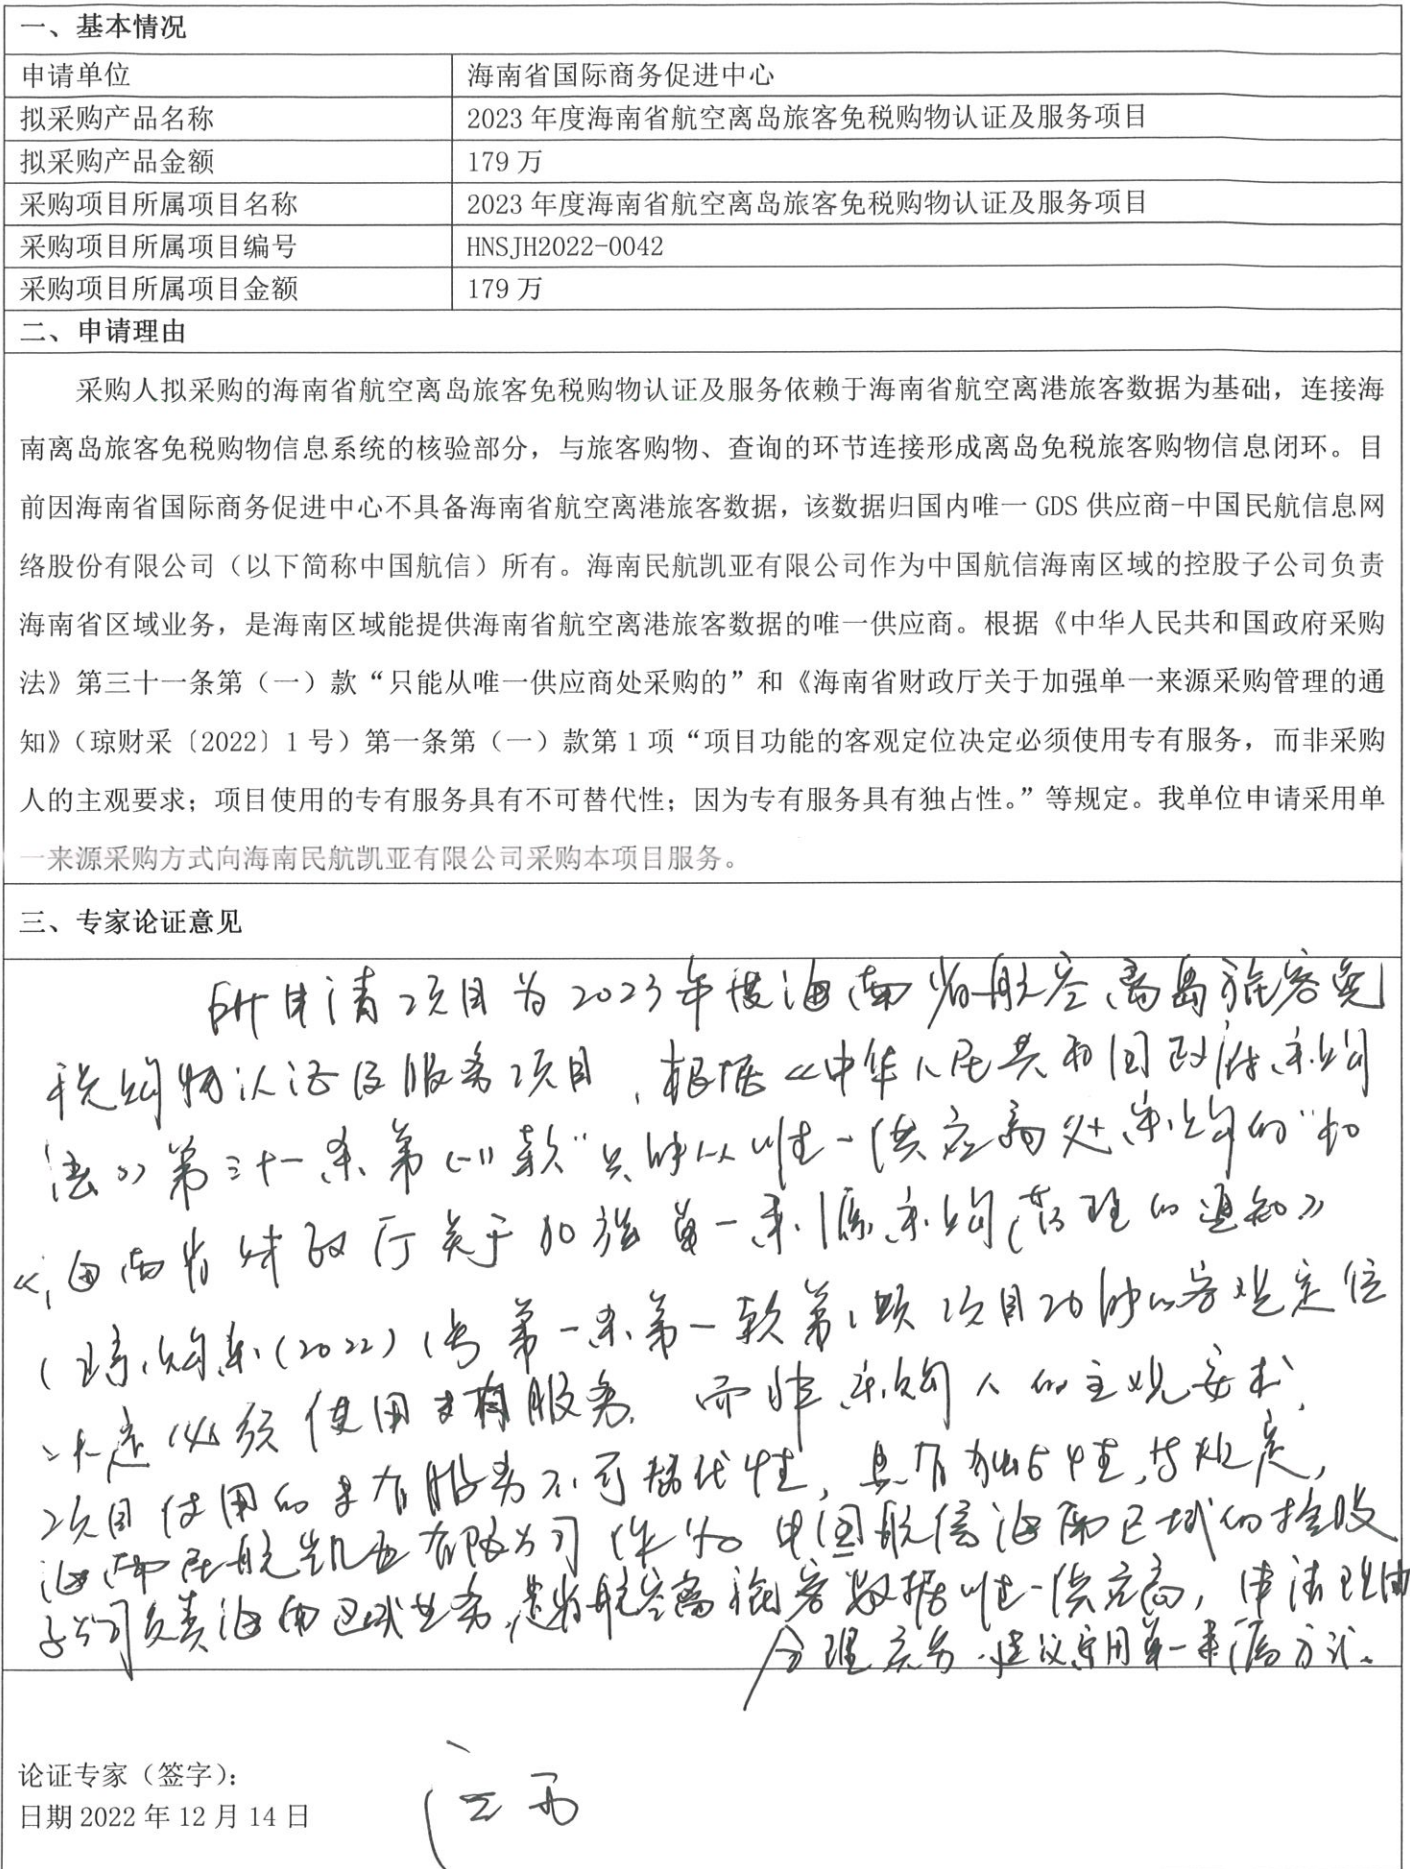 一、基本情况
申请单位 海南省国际商务促进中心
拟采购产品名称 2023年度海南省航空离岛旅客免税购物认证及服务项目
拟采购产品金额 179万
采购项目所属项目名称 2023年度海南省航空离岛旅客免税购物认证及服务项目
采购项目所属项目编号 HNSJH2022-0042
采购项目所属项目金额 179万
二、申请理由
采购人拟采购的海南省航空离岛旅客免税购物认证及服务依赖于海南省航空离港旅客数据为基础，连接海
南离岛旅客免税购物信息系统的核验部分，与旅客购物、查询的环节连接形成离岛免税旅客购物信息闭环。目
前因海南省国际商务促进中心不具备海南省航空离港旅客数据，该数据归国内唯一 GDS 供应商-中国民航信息网
络股份有限公司（以下简称中国航信）所有。海南民航凯亚有限公司作为中国航信海南区域的控股子公司负责
海南省区域业务，是海南区域能提供海南省航空离港旅客数据的唯一供应商。根据《中华人民共和国政府采购
法》第三十一条第（一）款“只能从唯一供应商处采购的”和《海南省财政厅关于加强单一来源采购管理的通
知》（琼财采〔2022〕1号）第一条第（一）款第1项“项目功能的客观定位决定必须使用专有服务，而非采购
人的主观要求；项目使用的专有服务具有不可替代性；因为专有服务具有独占性。”等规定。我单位申请采用单
一来源采购方式向海南民航凯亚有限公司采购本项目服务。
三、专家论证意见
所申请项目为2023年度海南省航空离岛旅客免
税购物认证及服务项目，根据《中华人民共和国政府采购
法》第三十一条第(一)款“只能从唯一供应商处采购的”和
《海南省财政厅关于加强单一来源采购管理的通知》
(琼购采(2022)1号第一条第一款第1项项目功能的客观定位
决定必须使用专有服务，而非采购人的主观要求，
项目使用的专有服务不可替代性，具有独占性，等规定，
海南民航凯亚有限公司作为中国航信海南区域的控股
子公司负责海南区域业务，是省航空离旅客数据唯一供应商，申请理由
合理充分，建议采用单一来源方式。
论证专家（签字）：
日期 2022年12月14日